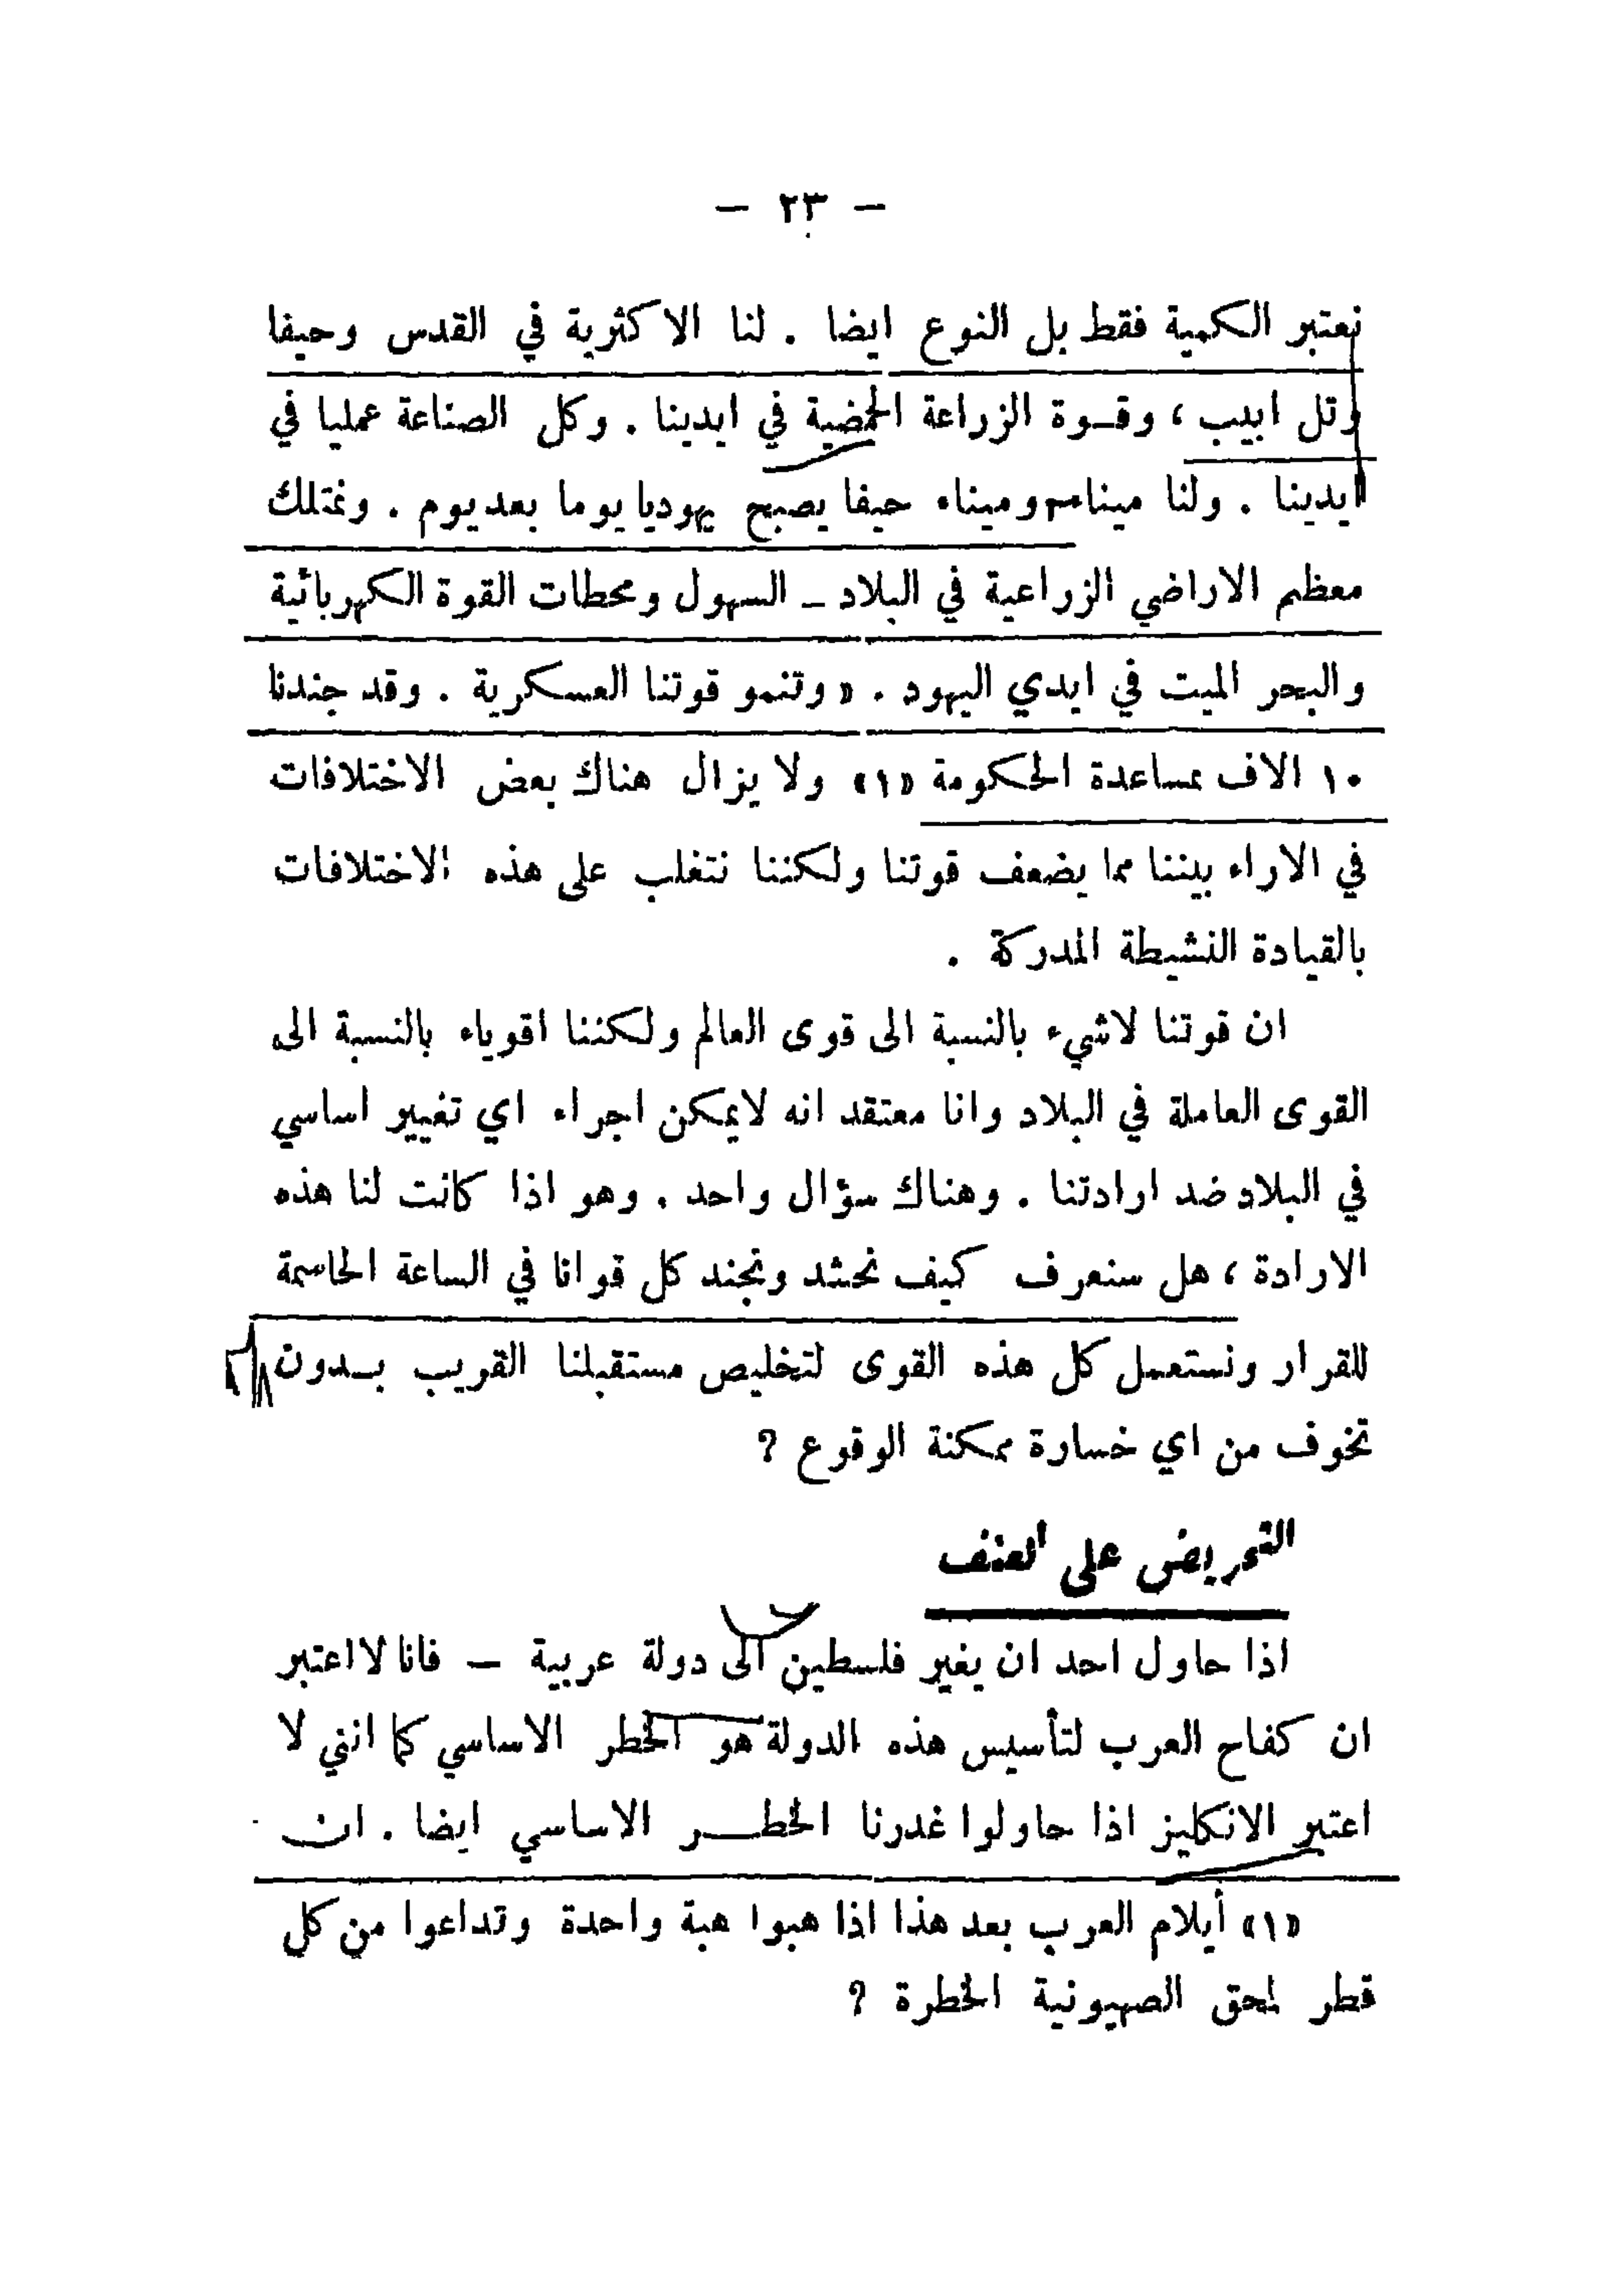 — ٢٣ —
نعتبر الكمية فقط بل النوع ايضا . لنا الاكثرية في القدس وحيفا
وتل ابيب ، وقـوة الزراعة الحمضية في ايدينا . وكل الصناعة عمليا في
ايدينا . ولنا ميناء وميناء حيفا يصبح يهوديا يوما بعد يوم . ونمتلك
معظم الاراضي الزراعية في البلاد ـ السهول ومحطات القوة الكهربائية
والبحر الميت في ايدي اليهود . « وتنمو قوتنا العسكرية . وقد جندنا
١٠ الاف بمساعدة الحكومة «١» ولا يزال هناك بعض الاختلافات
في الاراء بيننا مما يضعف قوتنا ولكننا نتغلب على هذه الاختلافات
بالقيادة النشيطة المدركة .
ان قوتنا لاشيء بالنسبة الى قوى العالم ولكننا اقوياء بالنسبة الى
القوى العاملة في البلاد وانا معتقد انه لايمكن اجراء اي تغيير اساسي
في البلاد ضد ارادتنا . وهناك سؤال واحد . وهو اذا كانت لنا هذه
الارادة ، هل سنعرف كيف نحشد ونجند كل قوانا في الساعة الحاسمة
للقرار ونستعمل كل هذه القوى لتخليص مستقبلنا القريب بـدون
تخوف من اي خسارة ممكنة الوقوع ؟
التحريض على العنف
اذا حاول احد ان يغير فلسطين الى دولة عربية — فانا لا اعتبر
ان كفاح العرب لتأسيس هذه الدولة هو الخطر الاساسي كما انني لا
اعتبر الانكليز اذا حاولوا غدرنا الخطـــر الاساسي ايضا . ان
«١» أيلام العرب بعد هذا اذا هبوا هبة واحدة وتداعوا من كل
قطر لمحق الصهيونية الخطرة ؟